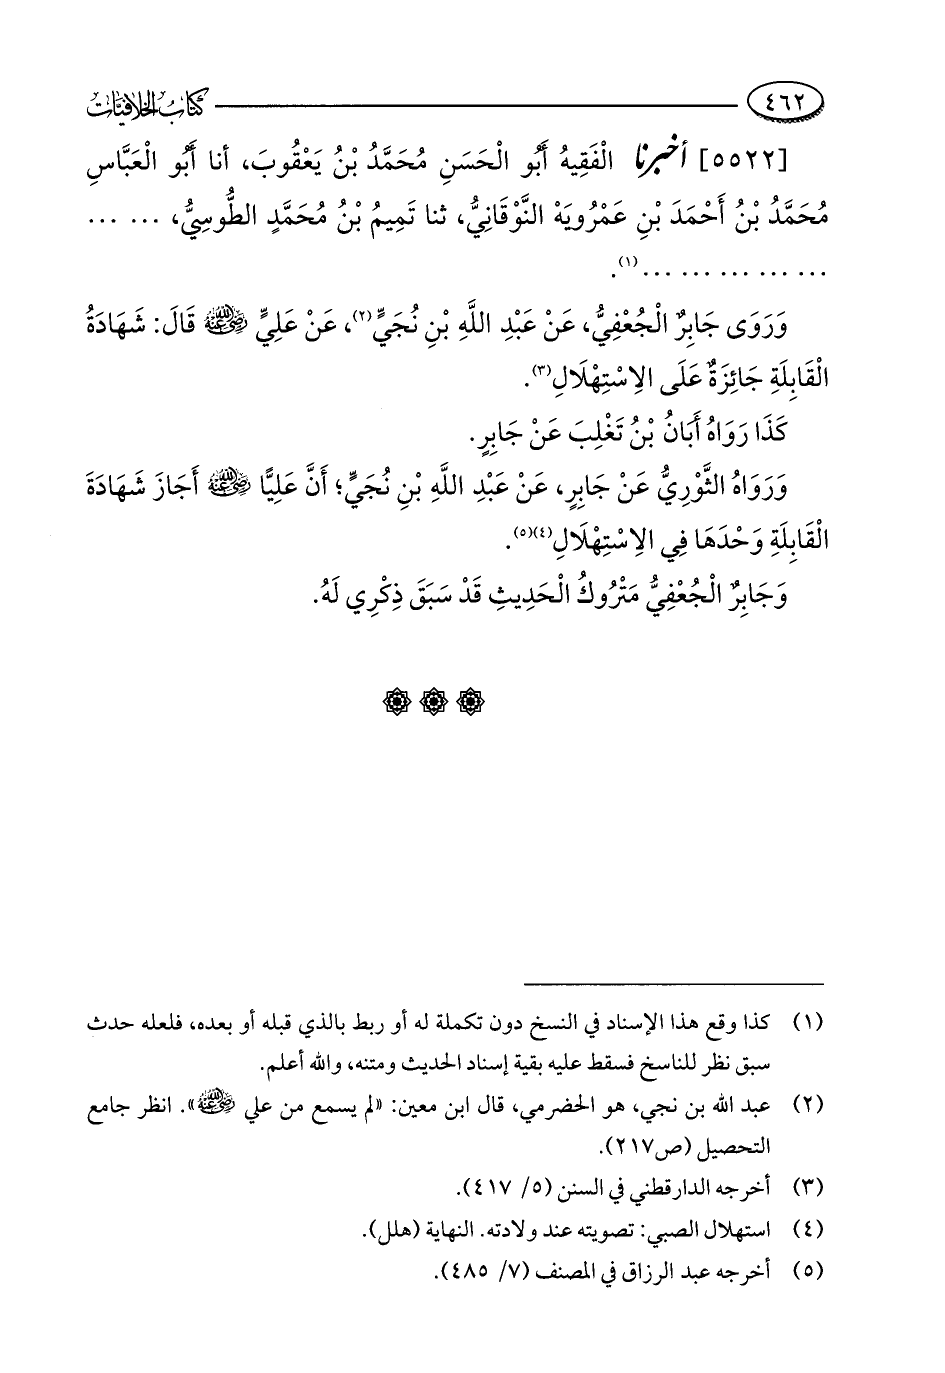 ٤٦٢ كتاب الخلافيات
[٥٥٢٢] أخبرنا الْفَقِيهُ أَبُو الْحَسَنِ مُحَمَّدُ بْنُ يَعْقُوبَ، أنا أَبُو الْعَبَّاسِ
مُحَمَّدُ بْنُ أَحْمَدَ بْنِ عَمْرُويَهْ النَّوْقَانِيُّ، ثنا تَمِيمُ بْنُ مُحَمَّدٍ الطُّوسِيُّ، ... ...
... ... ... ... ... ...(١).
وَرَوَى جَابِرٌ الْجُعْفِيُّ، عَنْ عَبْدِ اللَّهِ بْنِ نُجَيٍّ(٢)، عَنْ عَلِيٍّ رضي الله عنه قَالَ: شَهَادَةُ
الْقَابِلَةِ جَائِزَةٌ عَلَى الِاسْتِهْلَالِ(٣).
كَذَا رَوَاهُ أَبَانُ بْنُ تَغْلِبَ عَنْ جَابِرٍ.
وَرَوَاهُ الثَّوْرِيُّ عَنْ جَابِرٍ، عَنْ عَبْدِ اللَّهِ بْنِ نُجَيٍّ؛ أَنَّ عَلِيًّا رضي الله عنه أَجَازَ شَهَادَةَ
الْقَابِلَةِ وَحْدَهَا فِي الِاسْتِهْلَالِ(٤)(٥).
وَجَابِرٌ الْجُعْفِيُّ مَتْرُوكُ الْحَدِيثِ قَدْ سَبَقَ ذِكْرِي لَهُ.
(١) كذا وقع هذا الإسناد في النسخ دون تكملة له أو ربط بالذي قبله أو بعده، فلعله حدث
سبق نظر للناسخ فسقط عليه بقية إسناد الحديث ومتنه، والله أعلم.
(٢) عبد الله بن نجي، هو الحضرمي، قال ابن معين: «لم يسمع من علي رضي الله عنه». انظر جامع
التحصيل (ص٢١٧).
(٣) أخرجه الدارقطني في السنن (٥/ ٤١٧).
(٤) استهلال الصبي: تصويته عند ولادته. النهاية (هلل).
(٥) أخرجه عبد الرزاق في المصنف (٧/ ٤٨٥).